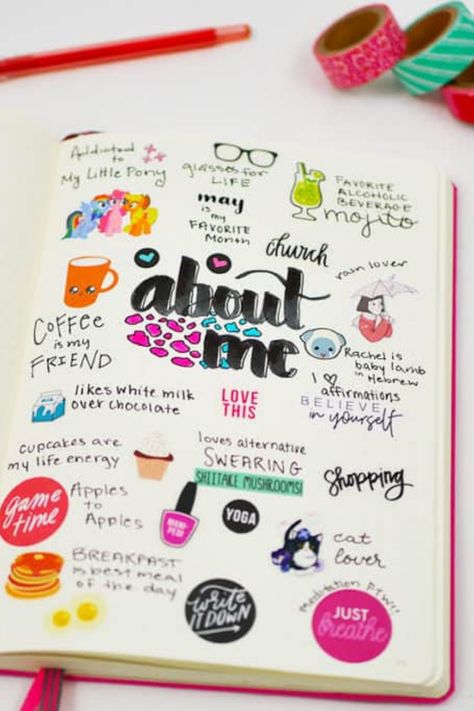 Addicted
to
My Little Pony
glasses for
LIFE
FAVORITE
ALCOHOLIC
BEVERAGE
mojito
may
is my
FAVORITE
Month
church
rain lover
about
me
COFFEE
is my
FRIEND
Rachel is
baby lamb
in Hebrew
likes white milk
over chocolate
LOVE
THIS
I ♡
affirmations
BELIEVE
in yourself
cupcakes are
my life energy
loves alternative
SWEARING
SHIITAKE MUSHROOMS!
shopping
game
time
Apples
to
Apples
MANI-
PEDI
YOGA
cat
lover
BREAKFAST
is best meal
of the day
write
IT DOWN
meditation FTW!!
JUST
breathe